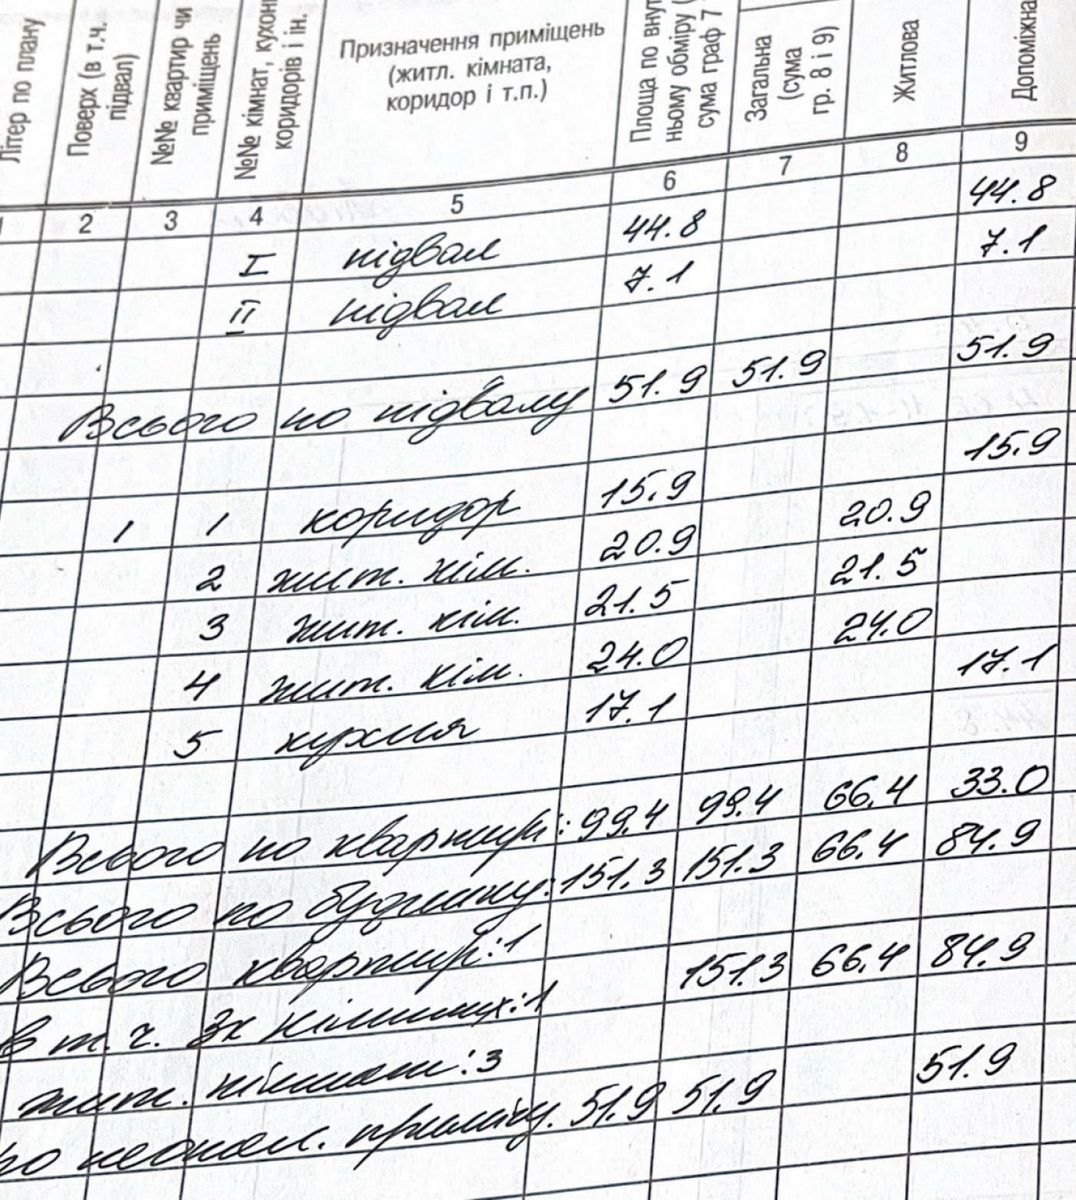 Літер по плану
Поверх (в т.ч. підвал)
№№ квартир чи приміщень
№№ кімнат, кухонь коридорів і ін.
Призначення приміщень
(житл. кімната,
коридор і т.п.)
Площа по внут
ньому обміру (
сума граф 7
Загальна
(сума
гр. 8 і 9)
Житлова
Допоміжна
1 2 3 4 5 6 7 8 9
I підвал 44.8 44.8
II підвал 7.1 7.1
Всього по підвалу 51.9 51.9 51.9
1 1 коридор 15.9 15.9
2 жит. кім. 20.9 20.9
3 жит. кім. 21.5 21.5
4 жит. кім. 24.0 24.0
5 кухня 17.1 17.1
Всього по квартирі: 99.4 99.4 66.4 33.0
Всього по будинку: 151.3 151.3 66.4 84.9
Всього квартир: 1 151.3 66.4 84.9
в т.ч. 3х кімнатних: 1
жит. кімнат: 3
51.9 51.9 51.9